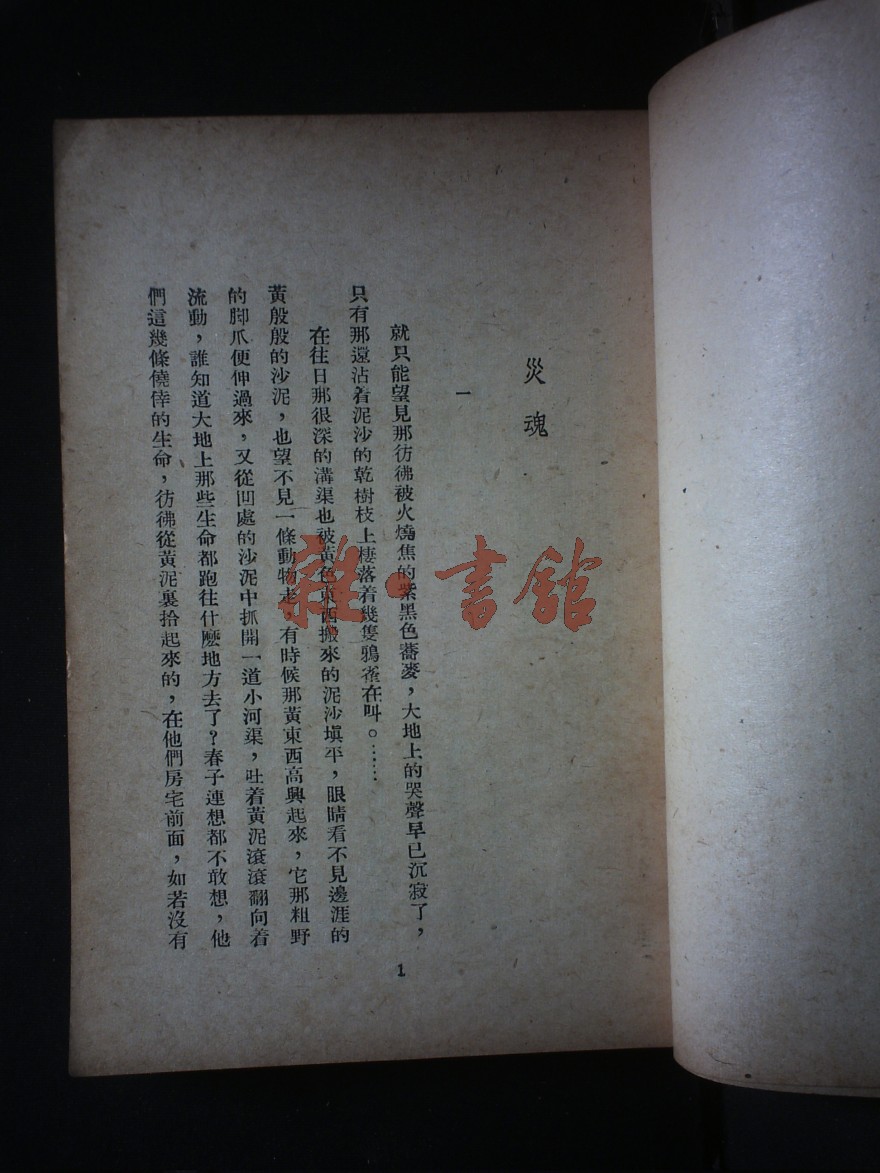 災魂
一
就只能望見那彷彿被火燒焦的紫黑色蕎麥，大地上的哭聲早已沉寂了，
只有那還沾着泥沙的乾樹枝上棲落着幾隻鴉雀在叫。……
在往日那很深的溝渠也被黃色東西搬來的泥沙塡平，眼睛看不見邊涯的
黃殷殷的沙泥，也望不見一條動物走，有時候那黃東西高興起來，它那粗野
的脚爪便伸過來，又從凹處的沙泥中抓開一道小河渠，吐着黃泥滾滾翻向着
流動，誰知道大地上那些生命都跑往什麽地方去了？春子連想都不敢想，他
們這幾條僥倖的生命，彷彿從黃泥裏拾起來的，在他們房宅前面，如若沒有
1
雜·書館